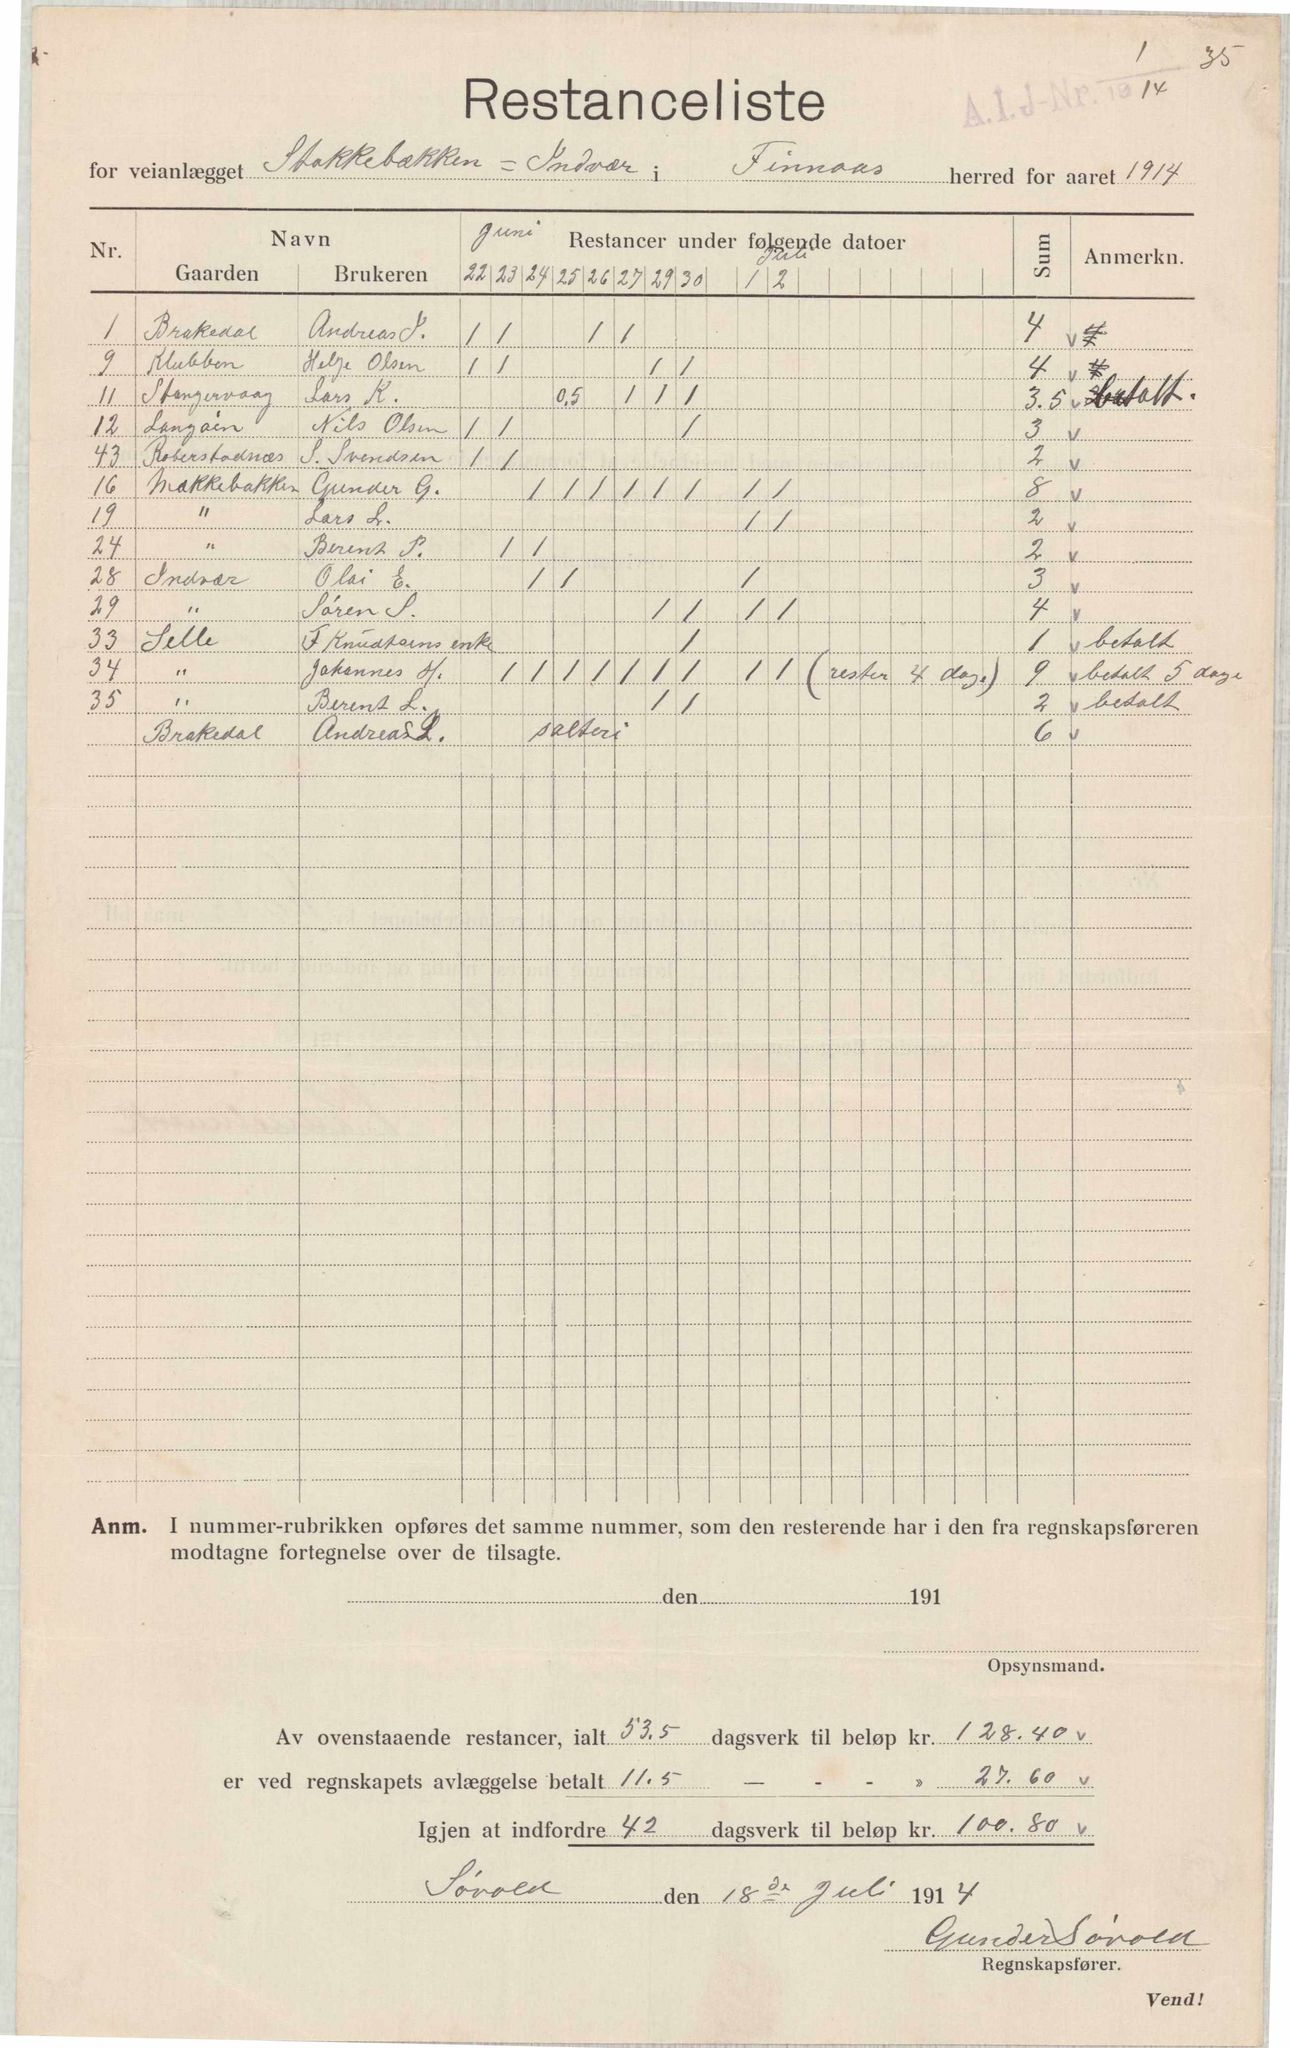 1 35
A.I.J-Nr. 19 14
Restanceliste
for veianlægget Stokkebækken = Indvær i Finnaas herred for aaret 1914
Nr. Navn Juni Restancer under følgende datoer Sum Anmerkn.
Juli
Gaarden Brukeren 22 23 24 25 26 27 29 30 1 2
1 Brakedal Andreas J. / / / / 4 v
9 Klubben Helje Olsen / / / / 4 v
11 Stangervaag Lars K. 0,5 / / / 3.5 v betalt.
12 Langøen Nils Olsen / / / 3 v
43 Roberstadnæs S. Svendsen / / 2 v
16 Mækkebakken Gunder G. / / / / / / / / 8 v
19 " Lars L. / / 2 v
24 " Berent P. / / 2 v
28 Indvær Olai E. / / / 3 v
29 " Søren S. / / / / 4 v
33 Selle F Knudtsens enke / 1 v betalt
34 " Johannes H. / / / / / / / / / (rester 4 dage) 9 v betalt 5 dage
35 " Berent L. / / 2 v betalt
Brakedal Andreas L. salteri 6 v
Anm. I nummer-rubrikken opføres det samme nummer, som den resterende har i den fra regnskapsføreren
modtagne fortegnelse over de tilsagte.
den 191
Opsynsmand.
Av ovenstaaende restancer, ialt 53.5 dagsverk til beløp kr. 128.40 v
er ved regnskapets avlæggelse betalt 11.5 — - - » 27.60 v
Igjen at indfordre 42 dagsverk til beløp kr. 100.80 v
Søvold den 18de Juli 1914
Gunder Søvold
Regnskapsfører.
Vend!